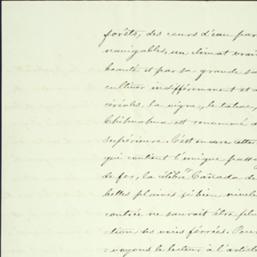 forêts, des cours d'eau par
navigables, un climat vrai
beauté et par sa grande sa
cultiver indifféremment et a
céréales, la vigne, le tabac,
Chihuahua est renommé d
supérieure. C'est encore cette
qui contient l'unique
de fer, la célèbre Cañada de
belles plaines si bien nivele
contrée ne saurait être plu
ction des voies ferrées. Pour
voyons le lecteur à l'article